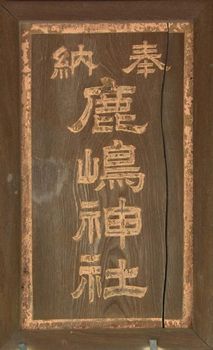 奉納
鹿嶋神社